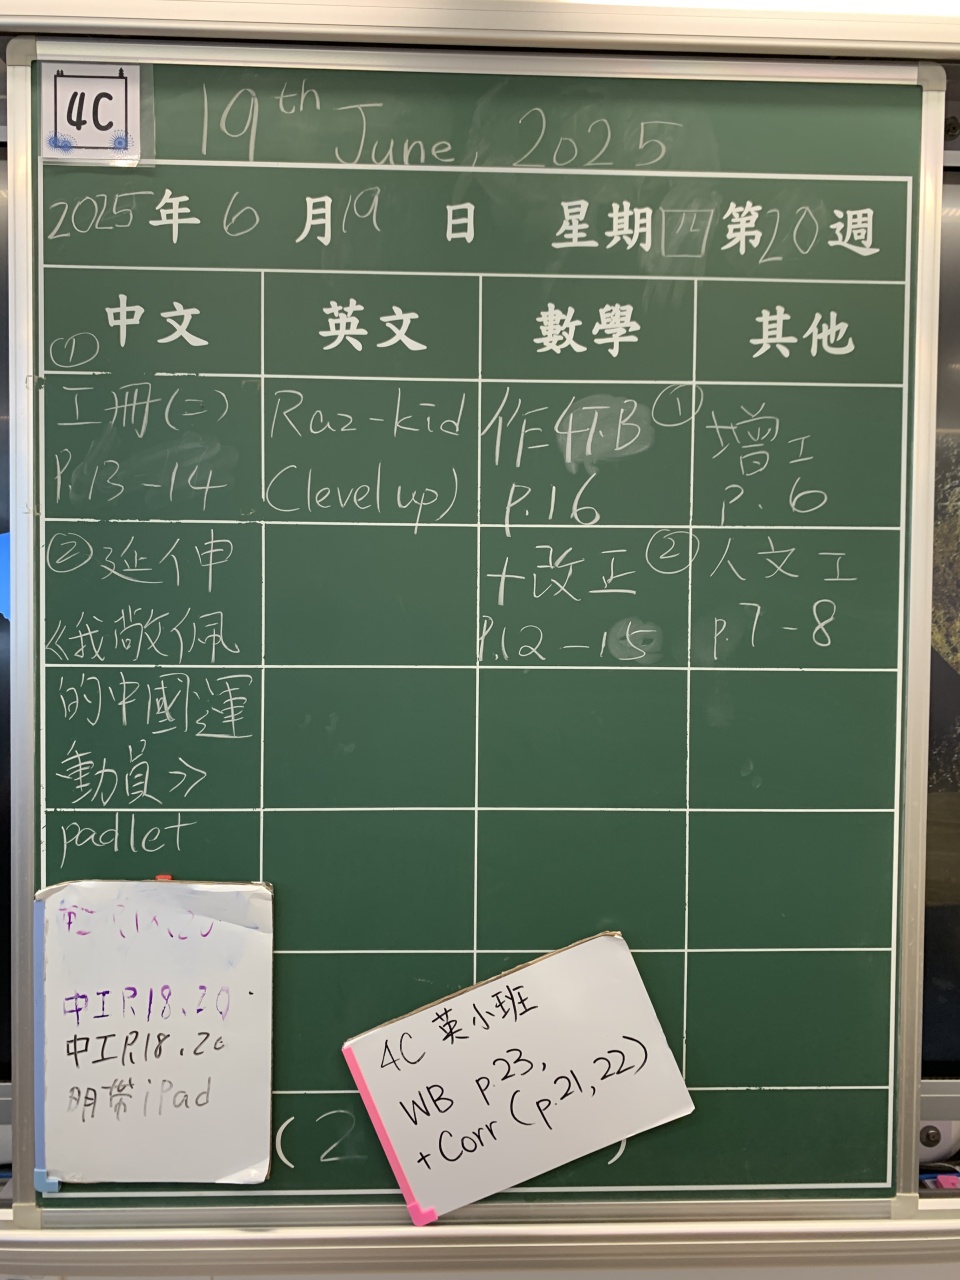 4C
19th June, 2025
2025年6月19日 星期四第20週
中文 英文 數學 其他
① 工冊(二)
P.13-14
② 延伸
《我敬佩
的中國運
動員》
padlet
Raz-kid
(level up)
作4TB
p.16
+改正
P.12-15
① 增工
p.6
② 人文工
p.7-8
中工P.18.20
中工P.18.20
明帶iPad
4C 英小班
WB p.23,
+Corr (p.21,22)
(2
)